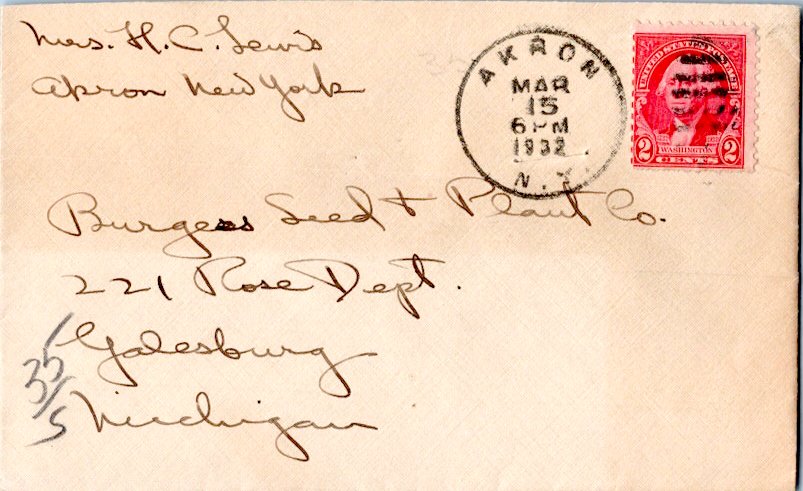 Mrs. H. C. Lewis
Akron New York
AKRON
MAR
15
6 PM
1932
N.Y.
UNITED STATES POSTAGE
2 WASHINGTON 2
CENTS
Burgess Seed + Plant Co.
221 Rose Dept.
Galesburg
Michigan
35/5